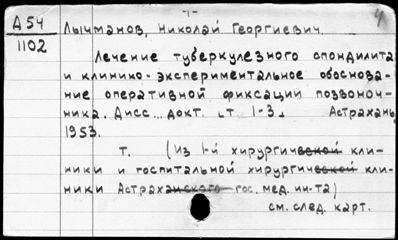 -1-
4
А 54 Лычманов, Николай Георгиевич.
1102
Лечение туберкулезного спондилита
и клинико-экспериментальное обоснова-
ние оперативной фиксации позвоноч-
ника. Дисс... докт. [т. 1-3]. Астрахань,
1953.
т. (Из 1-й хирургической кли-
ники и госпитальной хирургической кли-
ники Астраханского гос. мед. ин-та)
см. след. карт.